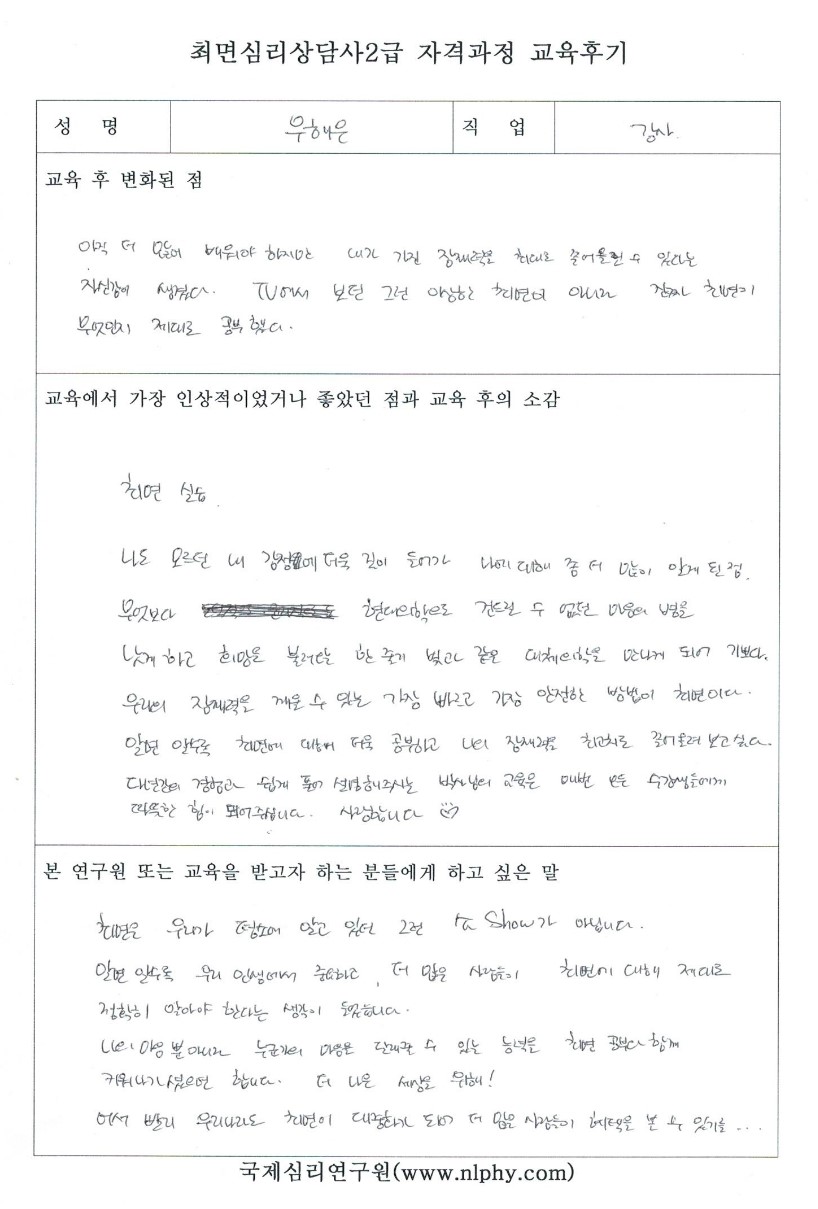 최면심리상담사2급 자격과정 교육후기
성 명 우해은 직 업 강사.
교육 후 변화된 점
아직 더 많이 배워야 하지만 내가 가진 잠재력을 최대로 끌어올릴 수 있다는
자신감이 생겼다. TV에서 보던 그런 이상한 최면이 아니라 진짜 최면이
무엇인지 제대로 공부했다.
교육에서 가장 인상적이었거나 좋았던 점과 교육 후의 소감
최면 실습.
나도 모르던 내 감정에 더욱 깊이 들어가 나에 대해 좀 더 많이 알게 된 점.
무엇보다 현대의학으로 건드릴 수 없던 마음의 병을
낫게 하고 희망을 불러오는 한 줄기 빛과 같은 대체의학을 만나게 되어 기쁘다.
우리의 잠재력을 깨울 수 있는 가장 빠르고 가장 안전한 방법이 최면이다.
알면 알수록 최면에 대해 더욱 공부하고 나의 잠재력을 최고치로 끌어올려 보고싶다.
다년간의 경험과 쉽게 풀어 설명해주시는 박사님의 교육은 매번 모든 수강생들에게
따뜻한 힘이 되어주십니다. 사랑합니다
본 연구원 또는 교육을 받고자 하는 분들에게 하고 싶은 말
최면은 우리가 평소에 알고 있던 그런 쇼 Show가 아닙니다.
알면 알수록 우리 인생에서 중요하고, 더 많은 사람들이 최면에 대해 제대로
정확히 알아야 한다는 생각이 들었습니다.
나의 마음 뿐 아니라 누군가의 마음을 수 있는 능력을 최면 공부와 함께
키워나가셨으면 합니다. 더 나은 세상을 위해!
어서 빨리 우리나라도 최면이 대중화가 되어 더 많은 사람들이 혜택을 볼 수 있기를...
국제심리연구원(www.nlphy.com)